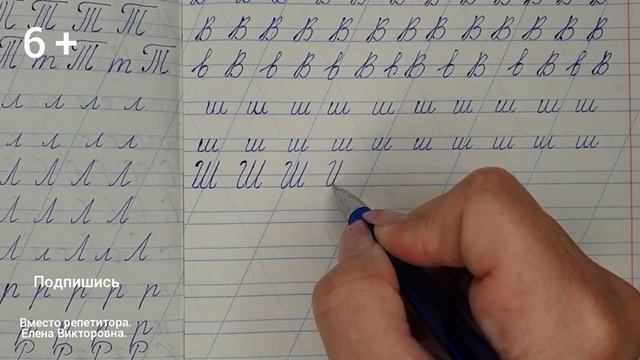 Т Т Т Т
Т т Т т Т
л л л л
л л л л
Л Л Л Л
Л Л Л Л
Л Л Л Л Л
р р р р р
р
Р Р Р Р
В В В В В В В В В В
в В в В в В в В в В в В в В
ш ш ш ш ш ш ш ш ш ш
ш ш ш ш ш ш ш ш ш ш
Ш Ш Ш
6 +
Подпишись
Вместо репетитора.
Елена Викторовна.